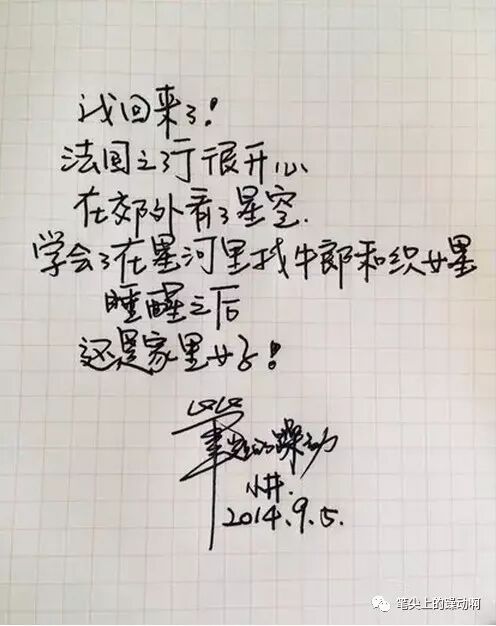 我回来了!
法国之行很开心
在郊外看了星空.
学会了在星河里找牛郎和织女星
睡醒之后
还是家里好!
笔尖的躁动
小井.
2014.9.5.
笔尖上的躁动啊